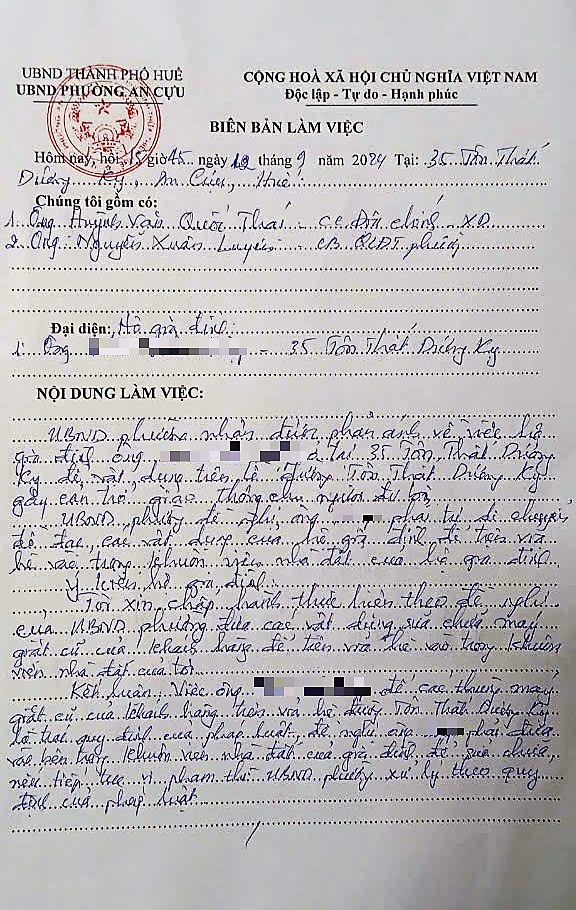 UBND THÀNH PHỐ HUẾ
UBND PHƯỜNG AN CỰU
CỘNG HOÀ XÃ HỘI CHỦ NGHĨA VIỆT NAM
Độc lập - Tự do - Hạnh phúc
BIÊN BẢN LÀM VIỆC
Hôm nay, hồi 15 giờ 45 ngày 12 tháng 9 năm 2024 Tại: 35 Tôn Thất
Dương Kỵ, An Cựu, Huế.
Chúng tôi gồm có:
1. Ông Huỳnh Văn Quốc Thái - CC Địa chính - XD
2. Ông: Nguyễn Xuân Luyến - CB QLĐT phường
Đại diện: Hộ gia đình:
1. Ông - 35 Tôn Thất Dương Kỵ
NỘI DUNG LÀM VIỆC:
UBND phường nhận được phản ánh về việc hộ
gia đình ông ở tại 35 Tôn Thất Dương
Kỵ để vật dụng trên lề đường Tôn Thất Dương Kỵ
gây cản trở giao thông của người đi bộ.
UBND phường đề nghị ông phải tự di chuyển
đồ đạc, các vật dụng của hộ gia đình để trên vỉa
hè vào trong khuôn viên nhà đất của hộ gia đình
Ý kiến hộ gia đình:
Tôi xin chấp hành thực hiện theo đề nghị
của UBND phường đưa các vật dụng sửa chữa máy
giặt cũ của khách hàng để trên vỉa hè vào trong khuôn
viên nhà đất của tôi.
Kết luận: Việc ông để các thùng máy
giặt cũ của khách hàng trên vỉa hè đường Tôn Thất Dương Kỵ
là trái quy định của pháp luật, đề nghị ông phải đưa
vào bên trong khuôn viên nhà đất của gia đình để sửa chữa,
nếu tiếp tục vi phạm thì UBND phường xử lý theo quy
định của pháp luật.